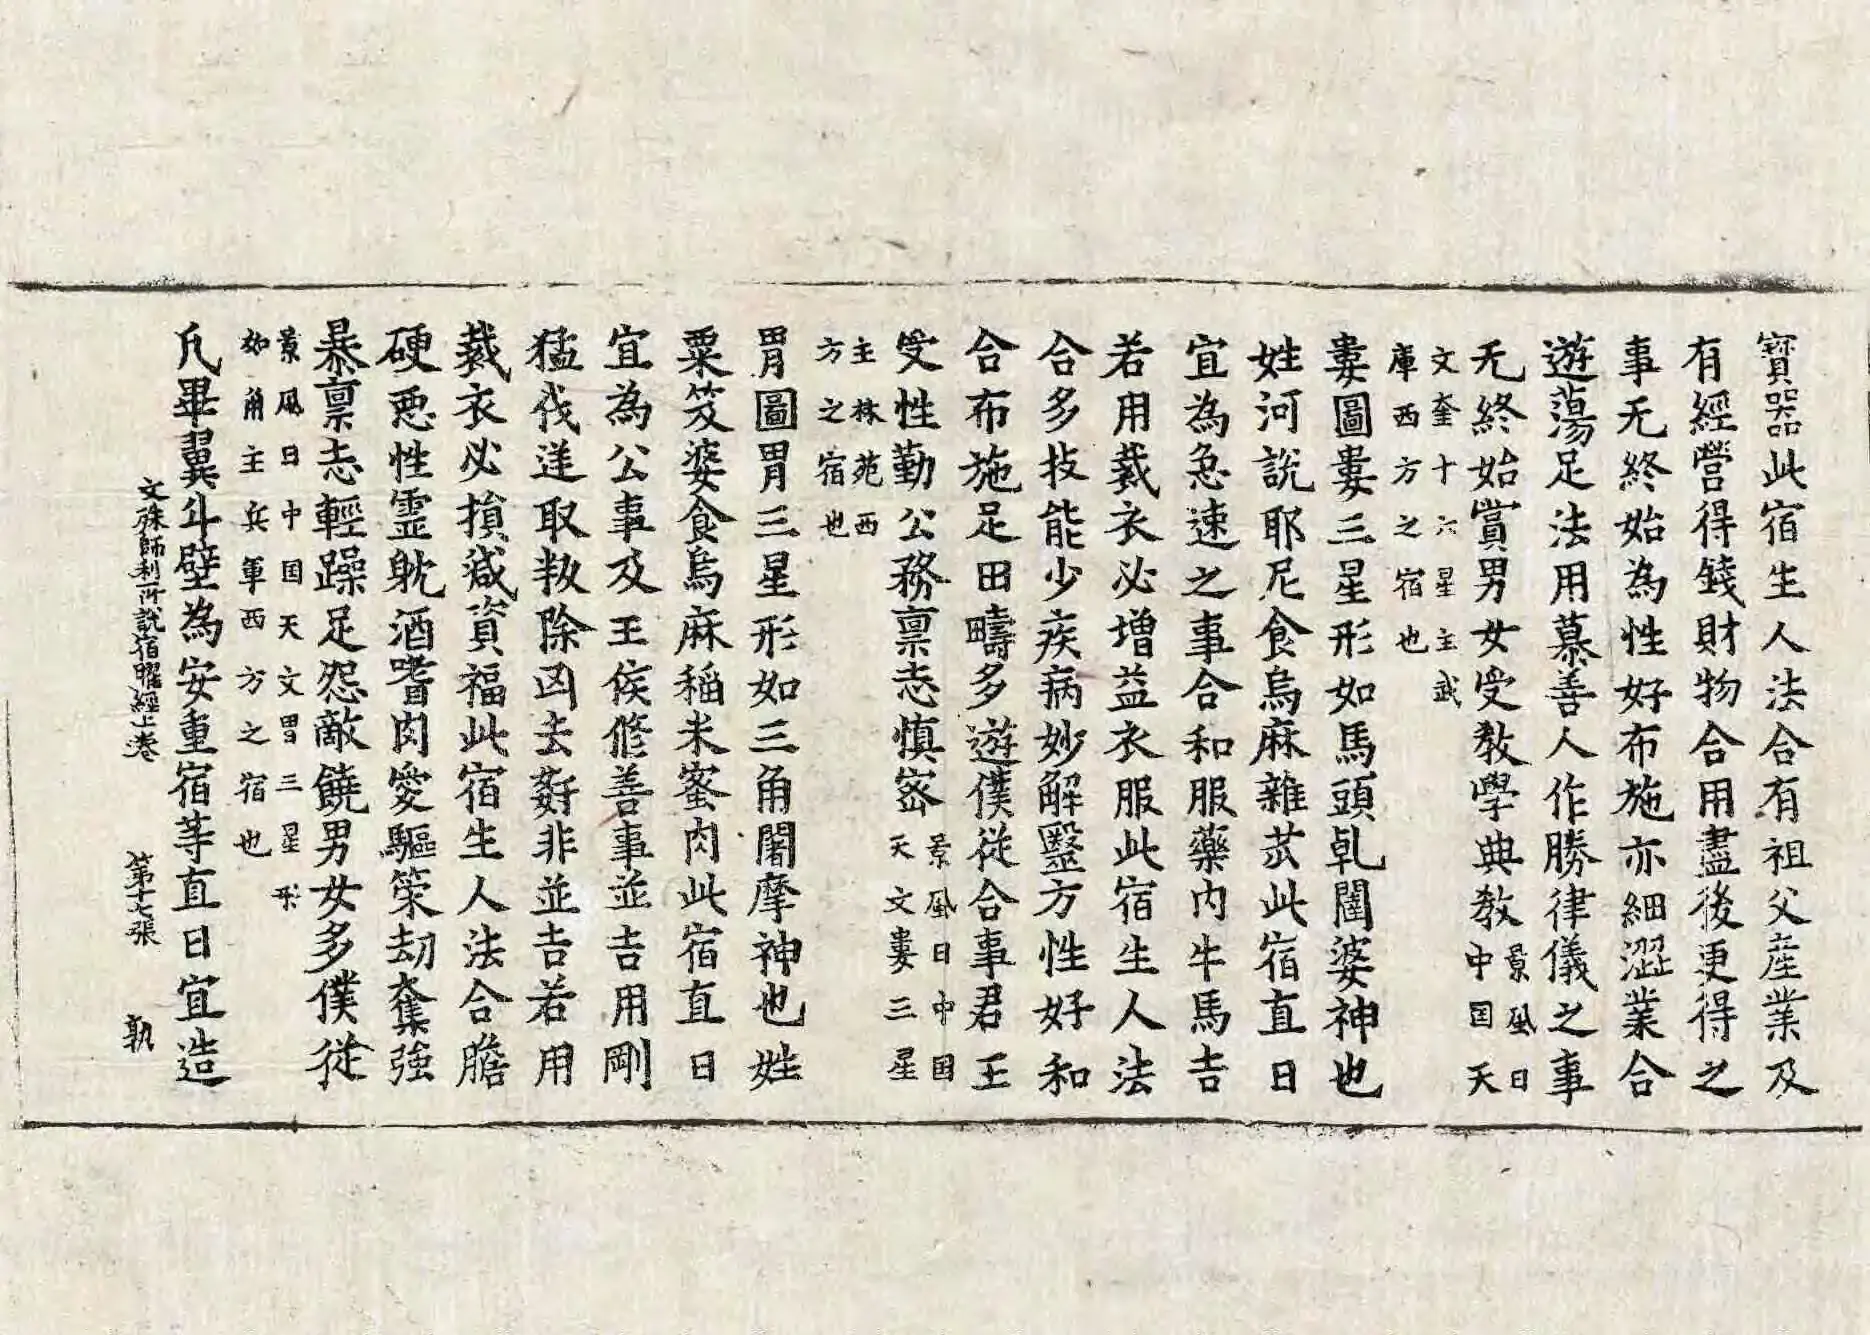 寶器此宿生人法合有祖父産業及
有經營得錢財物合用盡後更得之
事无終始為性好布施亦細澀業合
遊蕩足法用慕善人作勝律儀之事
无終始賞男女受教學典教景風日中国天
文奎十六星主武庫西方之宿也
婁圖婁三星形如馬頭乹闥婆神也
姓河説耶尼食烏麻雜苂此宿直日
宜為急速之事合和服藥内牛馬吉
若用裁衣必增益衣服此宿生人法
合多技能少疾病妙解毉方性好和
合布施足田疇多遊僕従合事君王
受性勤公務禀志慎宻景風日中国天文婁三星
主林苑西方之宿也
胃圖胃三星形如三角闍摩神也姓
粟笈婆食烏麻稲米蜜肉此宿直日
宜為公事及王侯修善事並吉用剛
猛伐逆取叛除凶去姧非並吉若用
裁衣必損減資福此宿生人法合膽
硬惡性靈躭酒嗜肉愛驅策劫奪強
暴禀志輕躁足怨敵饒男女多僕従
景風日中国天文胃三星形如角主兵軍西方之宿也
凡畢翼斗壁為安重宿等直日宜造
文殊師利所説宿曜經上卷 第十七張 執